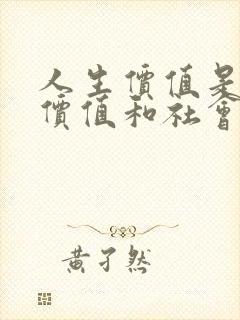 人生價值是
價值和社會
黃孑然